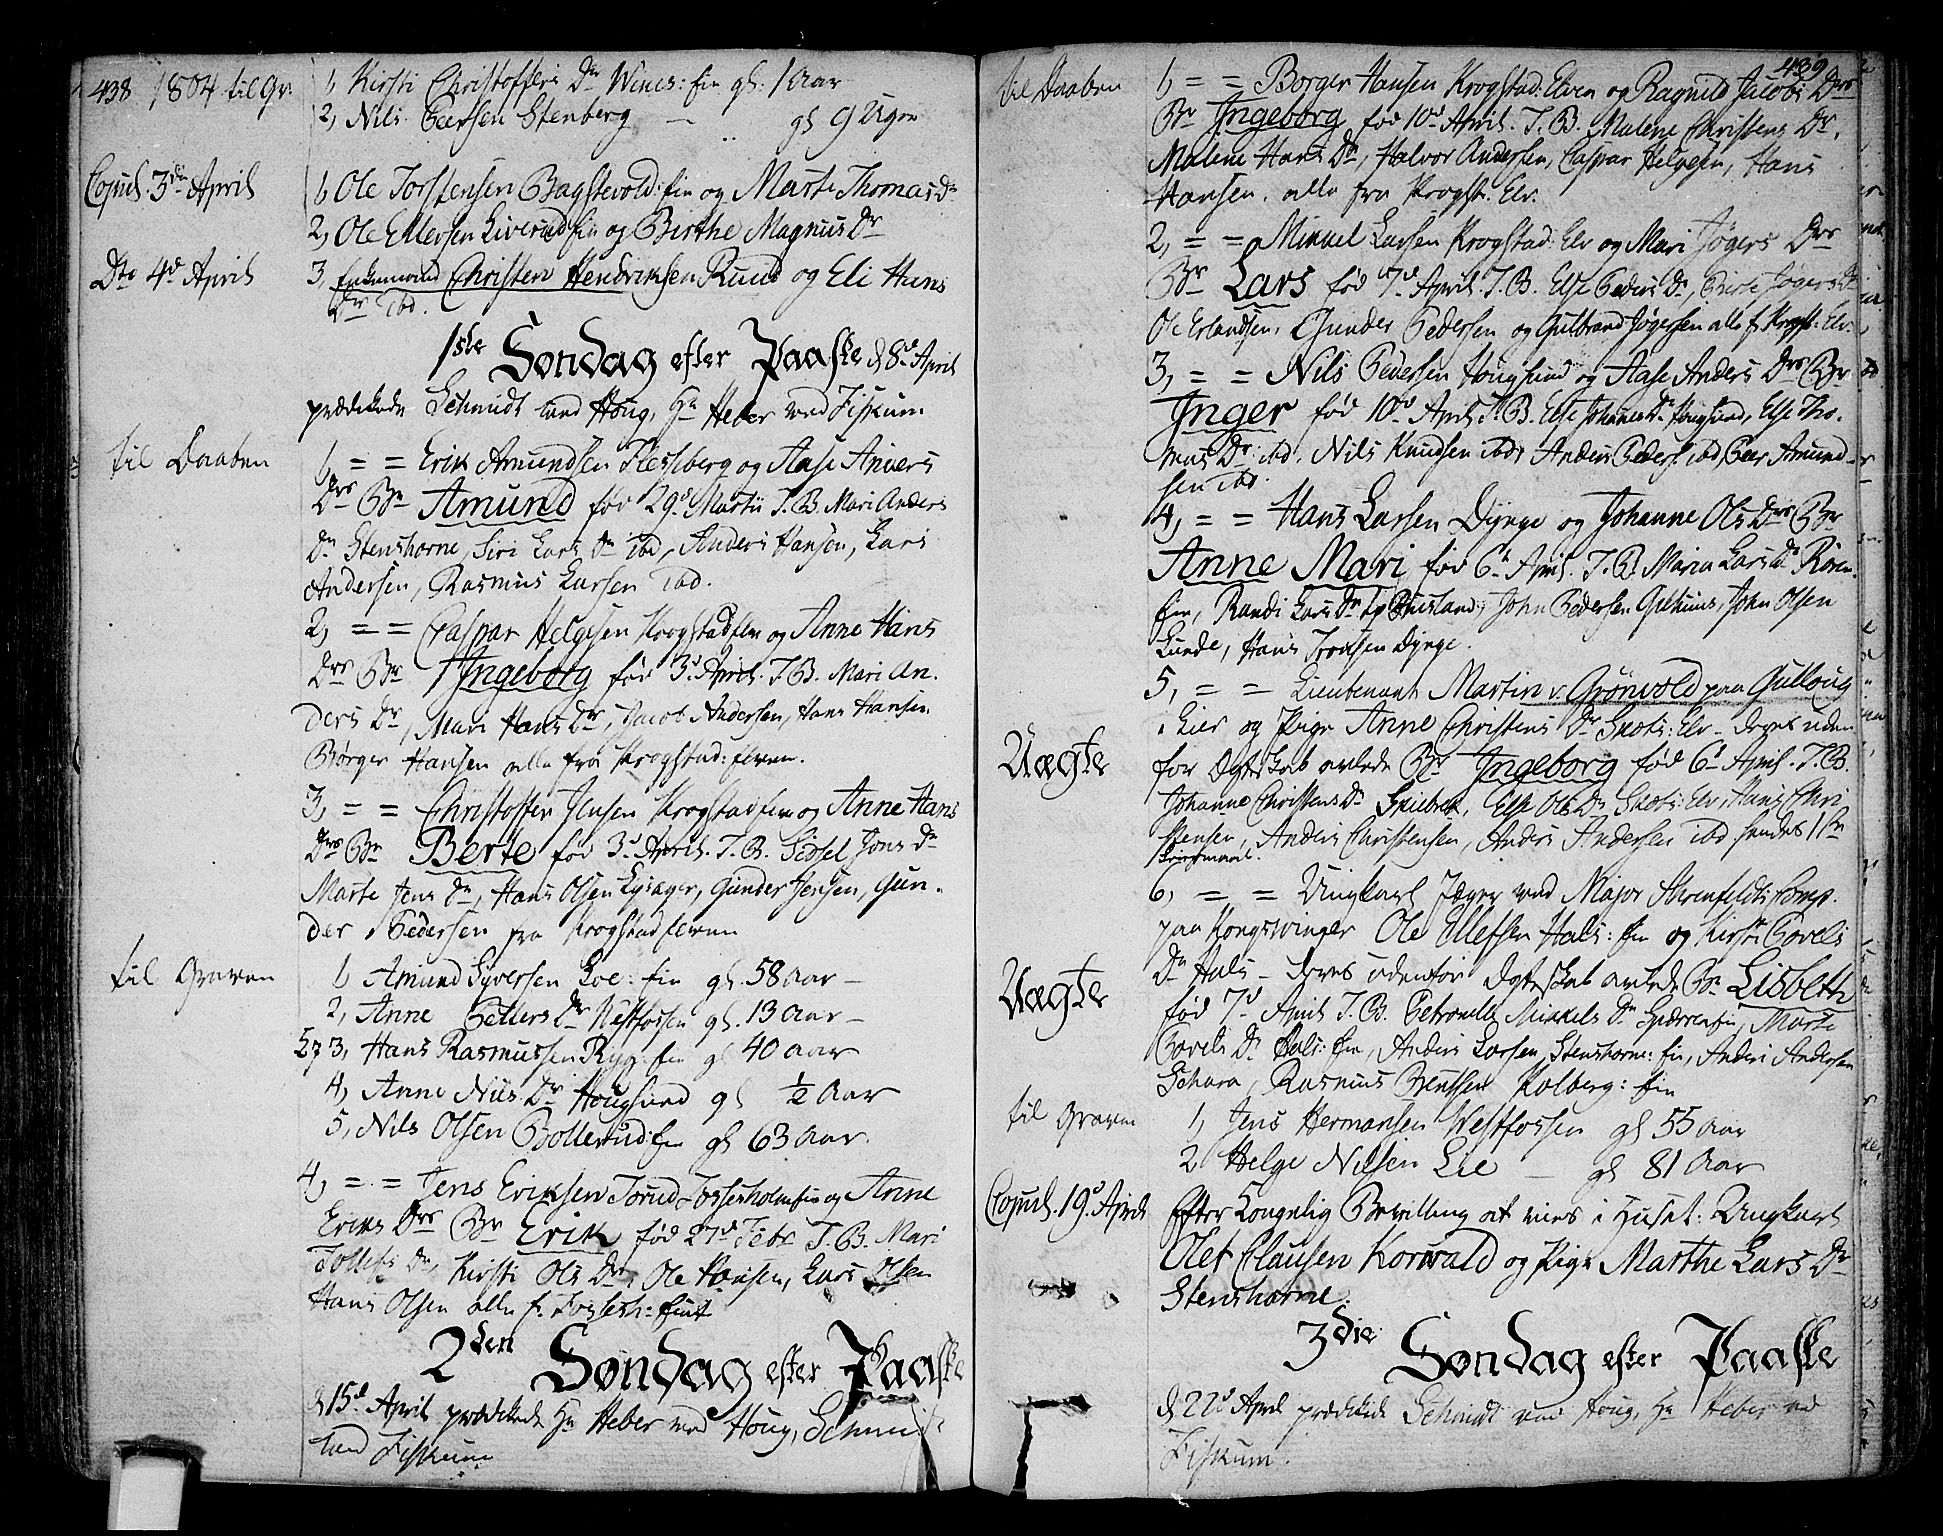 438 1804 til Gr:
1, Kirsti Christoffers Dr Wines: fin gl: 1 Aar
2, Nils Peersen Stenberg — gl 9 Uger
Copul. 3de April
1, Ole Torstensen Bagstevold: fin og Marte Thomas Dr
2, Ole Ellevsen Liverud fin og Birthe Magnus Dr
Dto 4de April
3, Enkemand Christen Hendriksen Ruud og Eli Hans
Dr ibd.
1ste Søndag efter Paaske d 8de April
prædikede Schmidt ved Houg, Hr Heber ved Fiskum
til Daaben
1, = = Erik Amundsen Flesseberg og Aase Anders
Drs Br Amund fød 29de Martii T. B. Mari Anders
Dr Stenshorne, Siri Lars Dr ibd, Anders Hansen, Lars
Andersen, Rasmus Larsen ibd.
2, = = Caspar Helgesen Krogstadelven og Anne Hans
Drs Br Ingeborg fød 3de April. T. B. Mari An-
ders Dr, Mari Hans Dr, Jacob Andersen, Hans Hansen
Børger Hansen alle fra Krogstad: elven.
3, = = Christoffer Jensen Krogstadelven og Anne Hans
Drs Br Berte fød 3de April. T. B. Sidsel Jons Dr
Marte Jens Dr, Hans Olsen Lysager, Gunder Jensen, Gun-
der Pedersen fra Krogstadelven
til Graven
1, Amund Syversen Loe: fin gl. 58 Aar —
2, Anne Petters Dr Westfossen gl. 13 Aar —
3, Hans Rasmussen Ryg: fin gl 40 Aar
4, Anne Nils Dr Hougsund gl ½ Aar
5, Nils Olsen Bollerud: fin gl 63 Aar.
4, = = Jens Eriksen og Anne
Eriks Drs Br Erik fød 27de Febr T. B. Mari
Tollefs Dr, Kirsti Ols Dr, Ole Hansen, Lars Olsen
Hans Olsen alle f.
2den Søndag efter Paaske
d 15de April prædikede Hr Heber ved Houg, Schmidt
ved Fiskum
439
til Daaben
1, = = Borger Hansen Krogstad: Elven og Ragnild Jacobs Drs
Br Ingeborg fød 10de April. T. B. Malene Christens Dr,
Malene Hans Dr, Halvor Andersen, Caspar Helgesen, Hans
Hansen, alle fra Krogst: Elv.
2, = = Mikkel Larsen Krogstad: Elv og Mari Jøgers Drs
Br Lars fød 7de April. T. B. Else Peders Dr, Birte Jøgers Dr
Ole Erlandsen, Gunder Pedersen og Gulbrand Jøgersen alle f. Krogst: Elv.
3, = = Nils Pedersen Hougsund og Aase Anders Drs Br
Inger fød 10de April T. B. Else Johannes Dr Hougsund, Else Tho-
mas Dr ibd, Nils Knudsen ibd, Anders Peders. ibd, Peer Amund-
sen ibd.
4, = = Hans Larsen Dynge og Johanne Ols Drs Br
Anne Mari fød 6te April. T. B. Maria Lars Dr
fin, Randi Lars Dr, John Pedersen, John Olsen
Lunde, Hans Dynge.
5, = = Lieutenant Martin v. Grønvold paa Gulloug
Uægte
i Lier og Pige Anne Christens Dr Skots: Elv - deres uden
for Ægteskab avlede Br Ingeborg fød 6te April. T. B.
Johanne Christens Dr Skiebrek, Else Ols Dr Skots: Elv, Hans Chri
stensen, Anders Christensen, Anders Andersen ibd hendes 1ste
6, = = Ungkarl Jæger ved Major Comp.
paa Kongswinger Ole Ellefsen Hals: fin og Kirsti Povels
Uægte
Dr Hals - deres udenfor Ægteskab avlede Br Lisbeth
fød 7de April T. B. Petronelle Mikkels Dr, Marte
Povels Dr Hals: fin, Anders Larsen Stenshorne: fin, Anders Andersen
Schara, Rasmus Bentsen Kolberg: fin
til Graven
1, Jens Hermansen Westfossen gl 55 Aar
2, Helge Nilsen Lie — gl 81 Aar
Copul. 19de April
Efter Kongelig Bevilling at vies i Huset: Ungkarl
Olef Clausen Korwald og Pige Marthe Lars Dr
Stenshorne.
3die Søndag efter Paaske
d 22de April prædikede Schmidt ved Houg, Hr Heber ved
Fiskum.